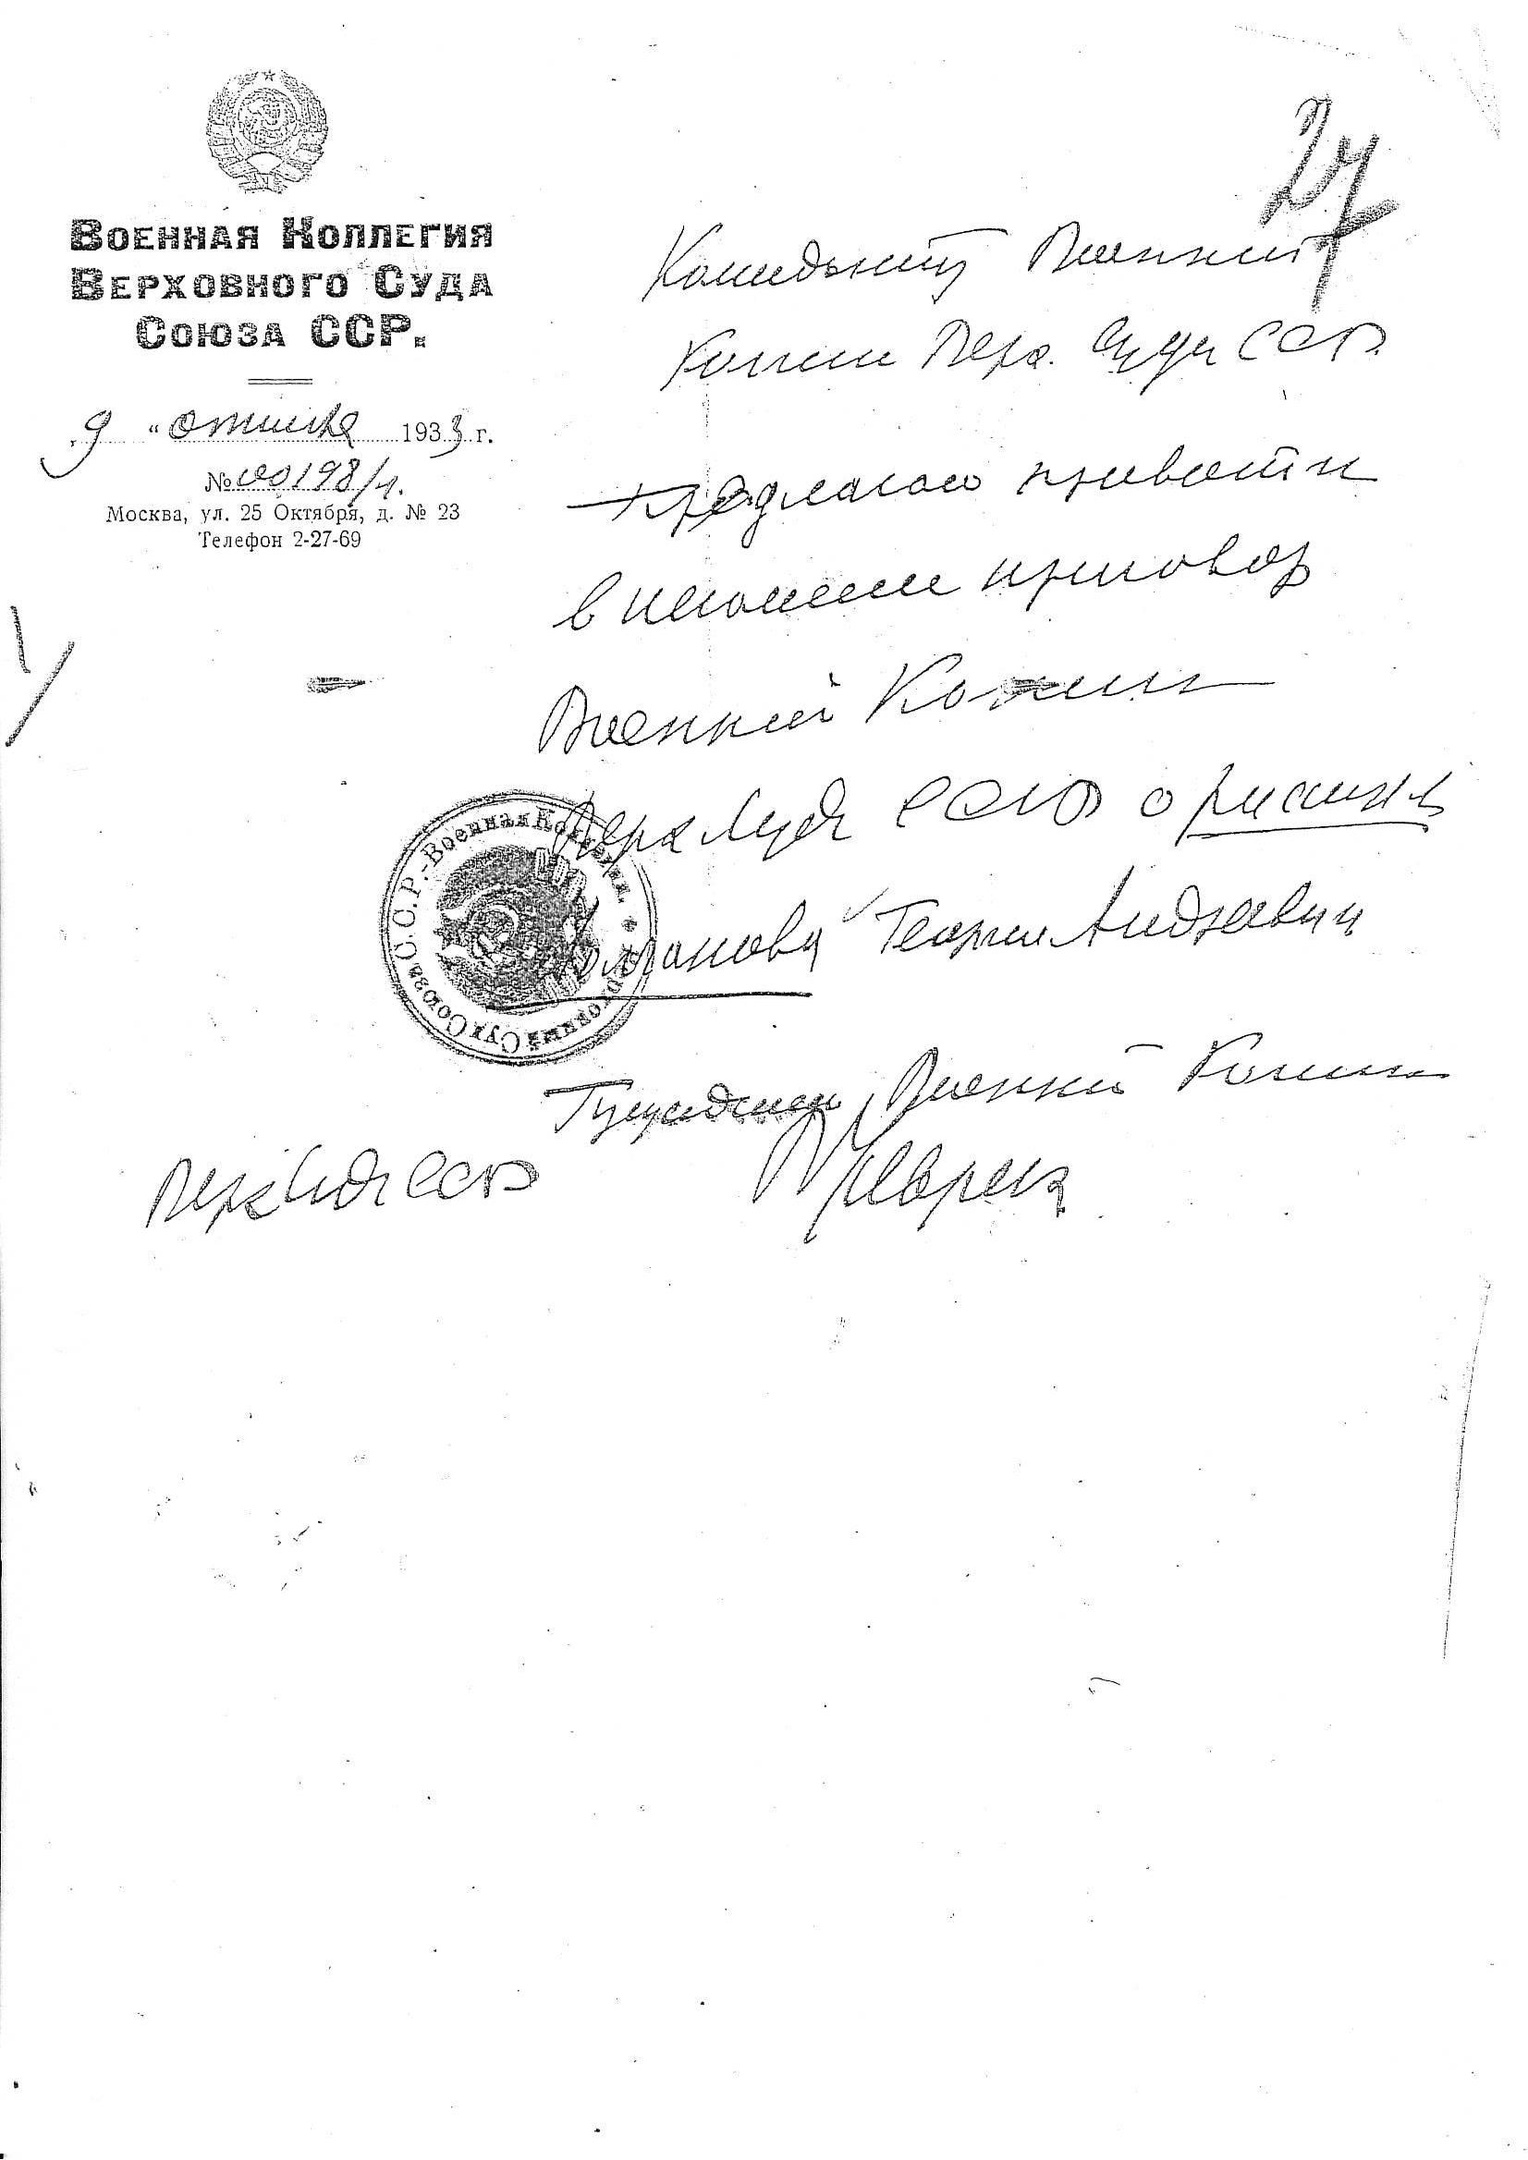 27
ВОЕННАЯ КОЛЛЕГИЯ
ВЕРХОВНОГО СУДА
СОЮЗА ССР.
9 " 1933 г.
№ 00198/
Москва, ул. 25 Октября, д. № 23
Телефон 2-27-69
Коменданту Военной
Коллегии Верх. Суда СССР
Предлагаю привести
в исполнение приговор
Военной Коллегии
Верх Суда СССР о расстреле
Георгия Андреевича
Председатель Военной Коллегии
Верх Суда СССР
Верховный Суд Союза С.С.Р.-Военная Коллегия.